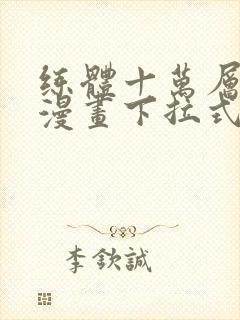 練體十萬層
漫畫下拉式
李欽誠